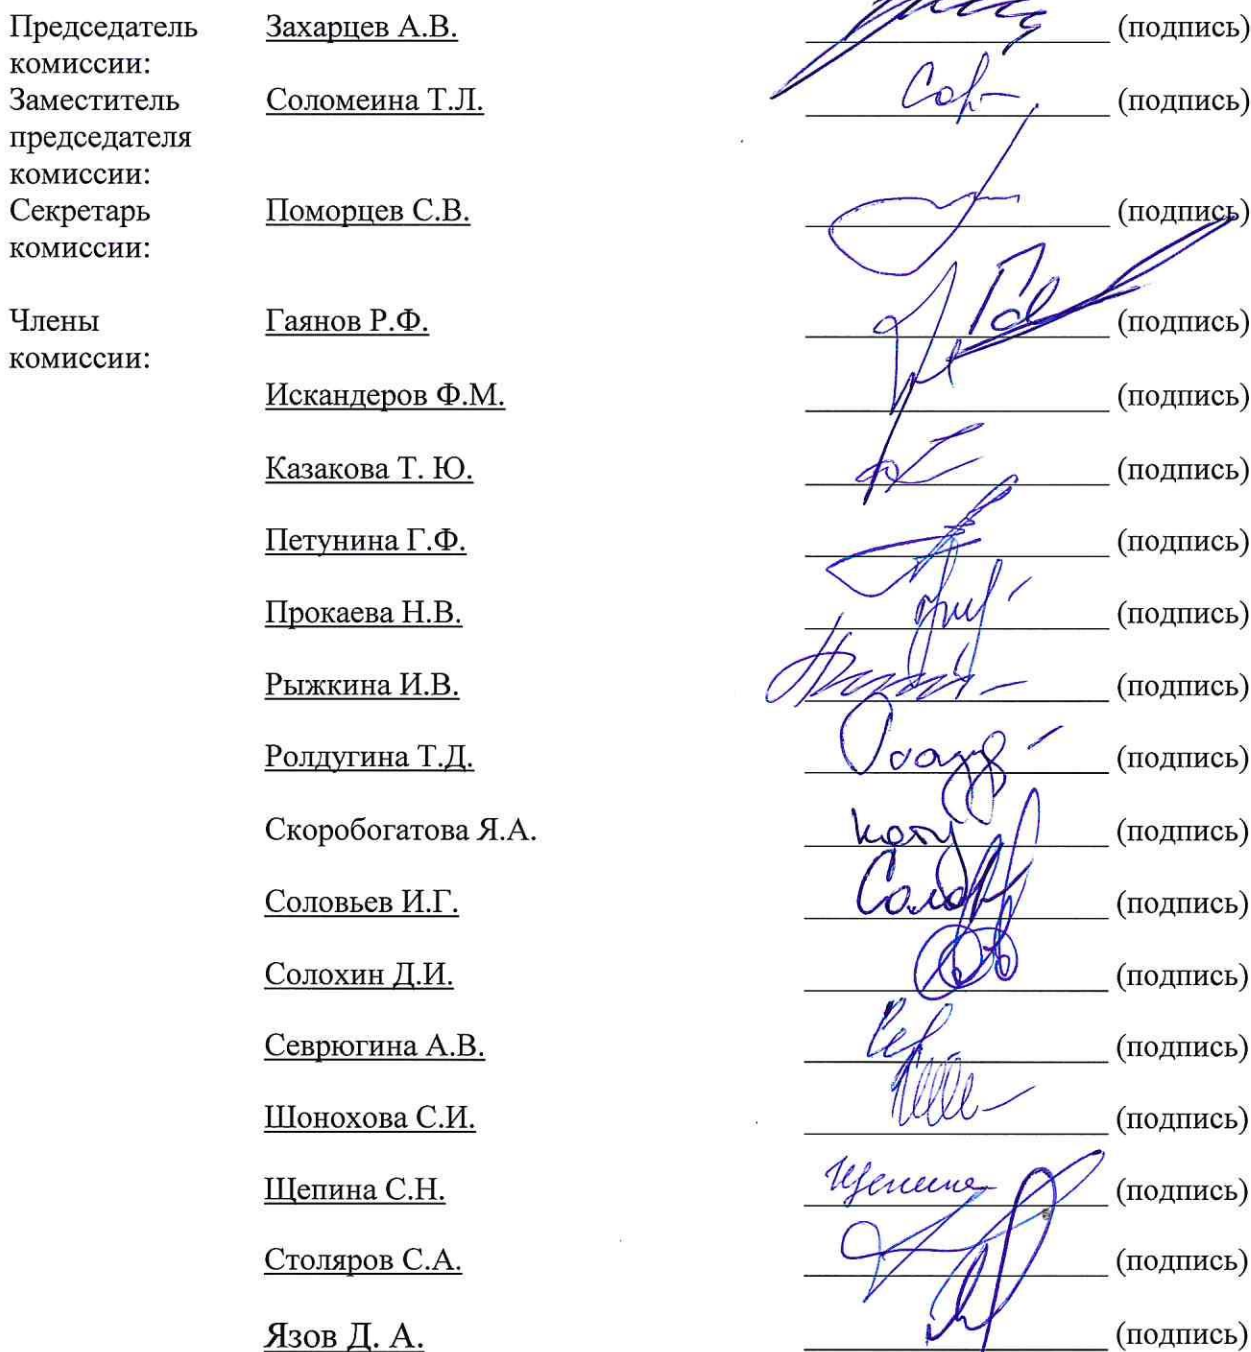 Председатель Захарцев А.В. (подпись)
комиссии:
Заместитель Соломеина Т.Л. (подпись)
председателя
комиссии:
Секретарь Поморцев С.В. (подпись)
комиссии:
Члены Гаянов Р.Ф. (подпись)
комиссии:
Искандеров Ф.М. (подпись)
Казакова Т. Ю. (подпись)
Петунина Г.Ф. (подпись)
Прокаева Н.В. (подпись)
Рыжкина И.В. (подпись)
Ролдугина Т.Д. (подпись)
Скоробогатова Я.А. (подпись)
Соловьев И.Г. (подпись)
Солохин Д.И. (подпись)
Севрюгина А.В. (подпись)
Шонохова С.И. (подпись)
Щепина С.Н. (подпись)
Столяров С.А. (подпись)
Язов Д. А. (подпись)